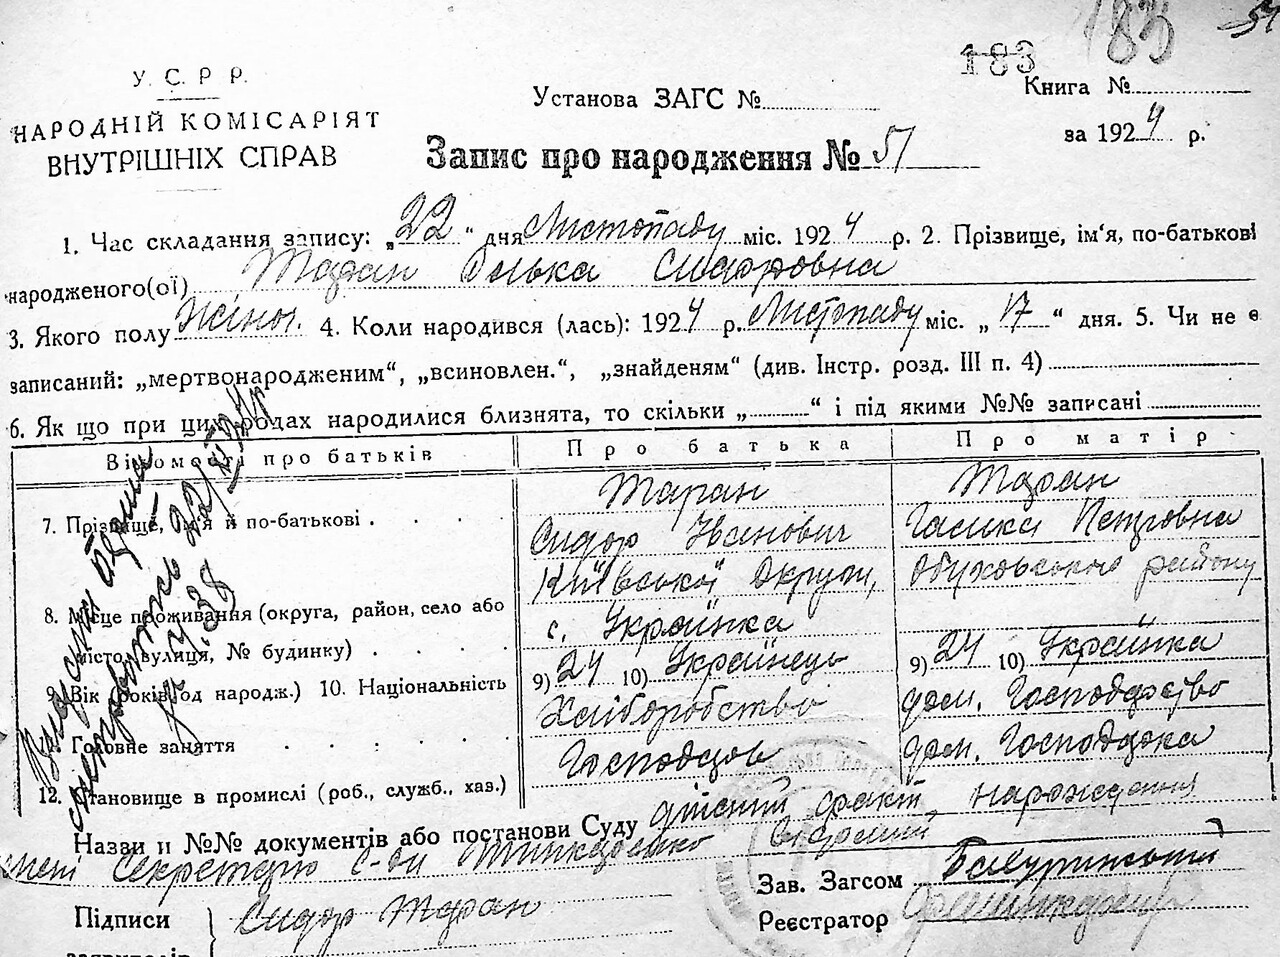 183 183 51
У. С. Р. Р.
НАРОДНІЙ КОМІСАРІЯТ
ВНУТРІШНІХ СПРАВ
Установа ЗАГС №
Книга №
за 1924 р.
Запис про народження № 51
1. Час складання запису: „22“ дня Листопаду міс. 1924 р. 2. Прізвище, ім'я, по-батькові
народженого(ої) Таран Олька Сидоровна
3. Якого полу Жіноч. 4. Коли народився (лась): 1924 р. Листопаду міс. „17“ дня. 5. Чи не є
записаний: „мертвонародженим“, „всиновлен.“, „знайденям“ (див. Інстр. розд. III п. 4)
6. Як що при цих родах народилися близнята, то скільки „ “ і під якими №№ записані
Відомості про батьків Про батька Про матір
7. Прізвище, ім'я й по-батькові Таран Таран
Сидор Іванович Гаська Петровна
8. Місце проживання (округа, район, село або Київської Округи, Обуховського району
місто, вулиця, № будинку) с. Українка
9. Вік (років од народж.) 10. Національність 9) 24 10) Українець 9) 24 10) Українка
11. Головне заняття Хліборобство дом. Господарство
12. Становище в промислі (роб., служб., хаз.) Господар дом. Господарка
Назви и №№ документів або постанови Суду дійсний факт народження
мені Секретарю С-ди відомий
Зав. Загсом
Підписи Сидор Таран
Реєстратор
заявителів